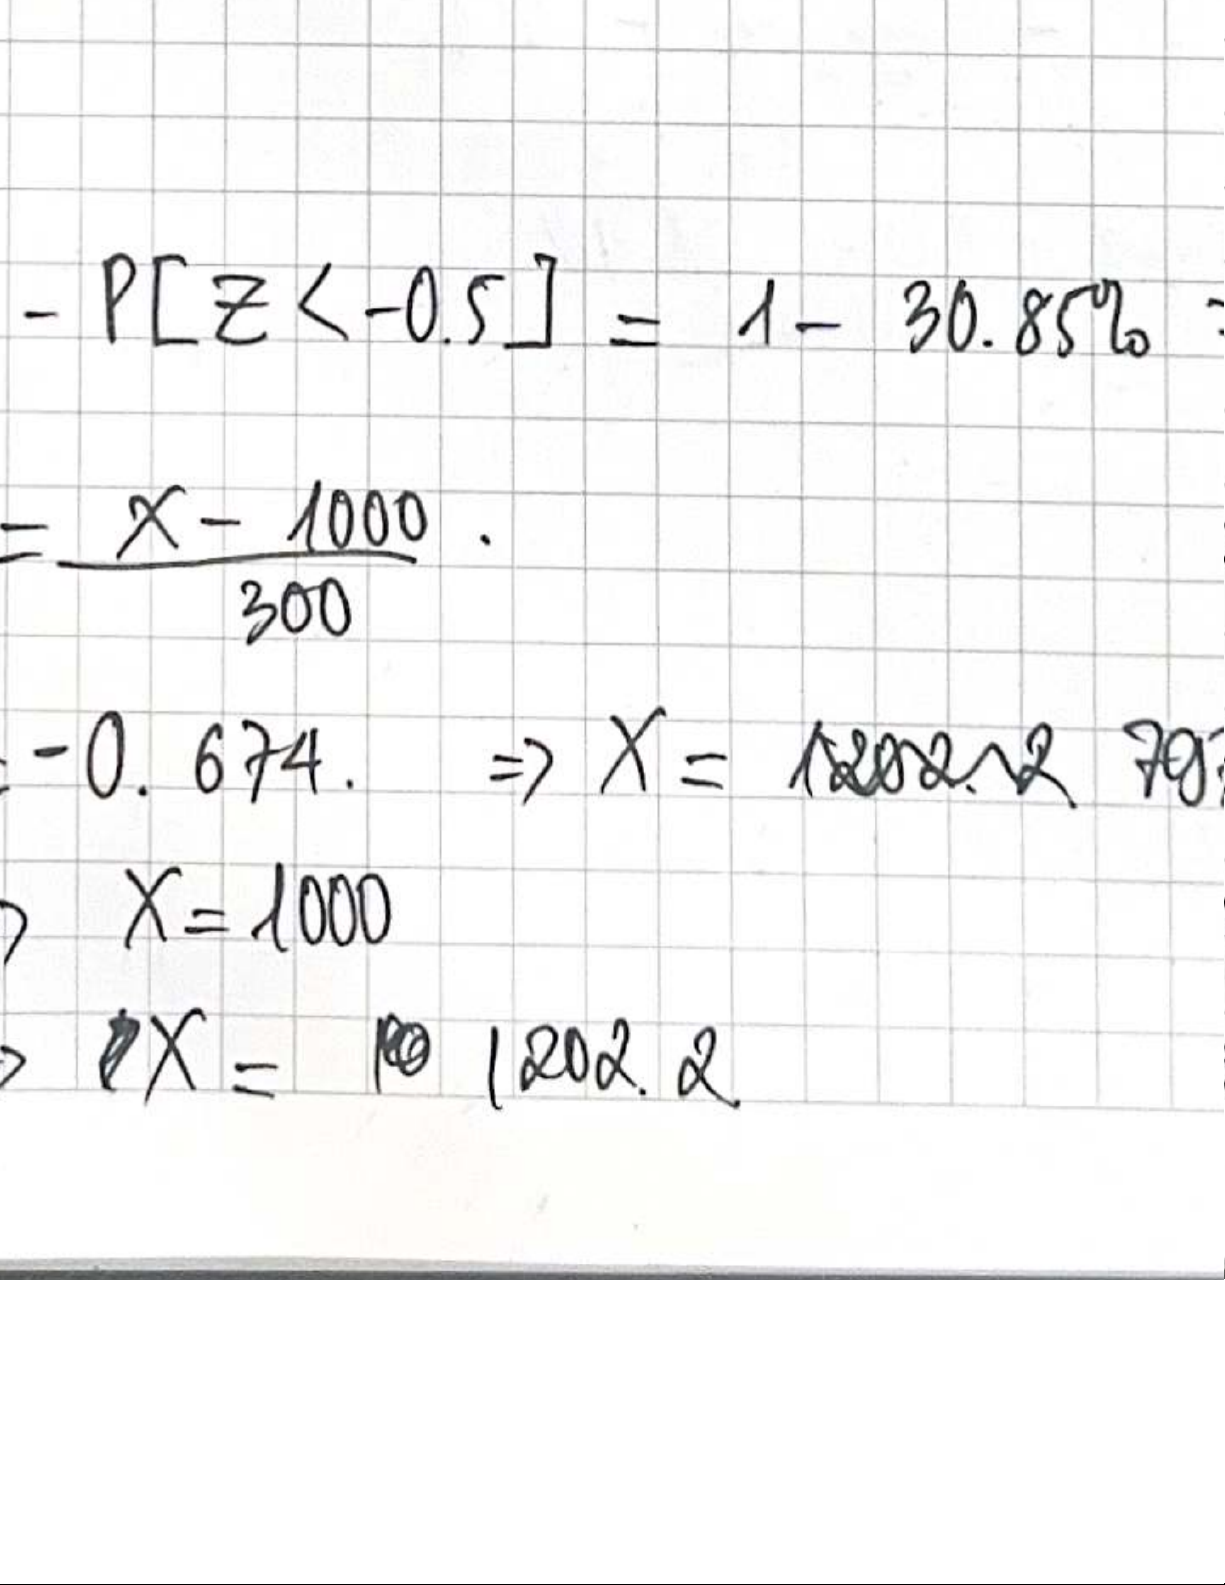 - P[Z < -0.5] = 1 - 30.85% =
= X - 1000 .
300
= -0.674. => X =
=> X = 1000
=> X = 1202.2